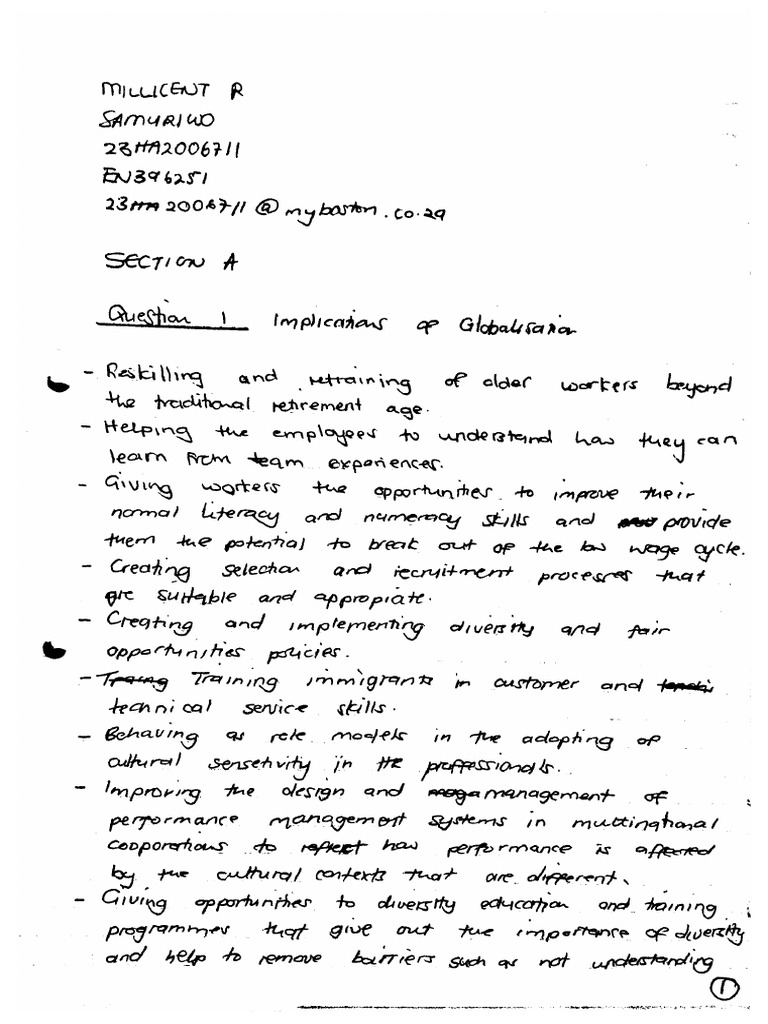 MILLICENT R
SAMURIWO
23HA2006711
EN396251
23HA2006711@myboston.co.za
SECTION A
Question 1 Implications of Globalisation
- Reskilling and retraining of older workers beyond
the traditional retirement age.
- Helping the employees to understand how they can
learn from team experiences.
- Giving workers the opportunities to improve their
normal literacy and numeracy skills and provide
them the potential to break out of the low wage cycle.
- Creating selection and recruitment processes that
are suitable and appropiate.
- Creating and implementing diversity and fair
opportunities policies.
- Training immigrants in customer and
technical service skills.
- Behaving as role models in the adopting of
cultural sensetivity in the proffessionals.
- Improving the design and management of
performance management systems in multinational
cooporations to reflect how performance is affected
by the cultural contexts that are different.
- Giving opportunities to diversity education and training
programmes that give out the importance of diversity
and help to remove barriers such as not understanding
1